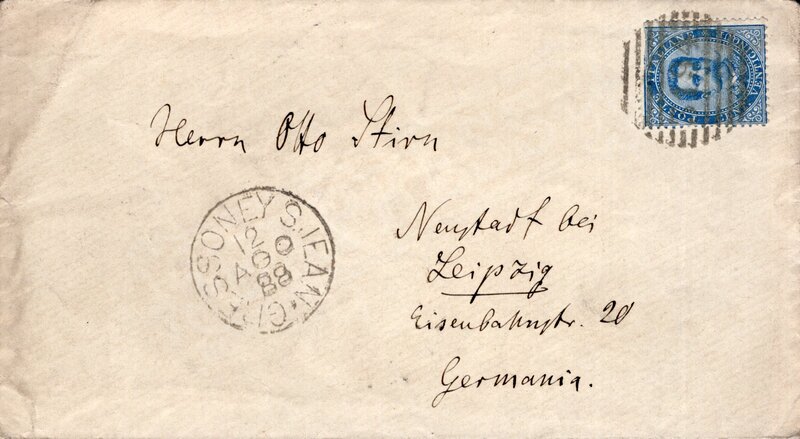 POSTE ITALIANE
Herrn Otto Stirn
GRESSONEY S. JEAN
12
AGO
88
Neustadt bei
Leipzig
Eisenbahnstr. 20
Germania.